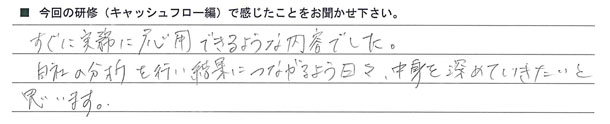 ■ 今回の研修（キャッシュフロー編）で感じたことをお聞かせ下さい。
すぐに実務に応用できるような内容でした。
自社の分析を行い結果につながるよう日々、中身を深めていきたいと
思います。